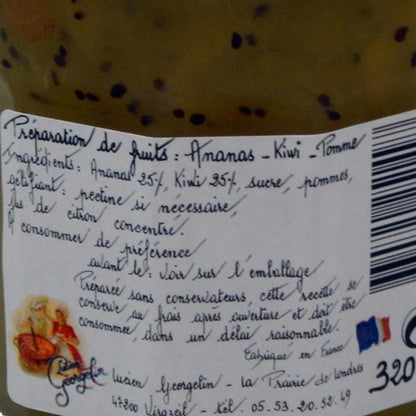 Préparation de fruits : Ananas - Kiwi - Pomme
Ingrédients : Ananas 25%, Kiwi 25%, sucre, pommes,
gélifiant : pectine si nécessaire,
jus de citron concentré.
A consommer de préférence
avant le : voir sur l'emballage
Préparée sans conservateurs, cette recette se
conserve au frais après ouverture et doit être
consommée, dans un délai raisonnable.
Fabriqué en France
Lucien
Georgelin
Lucien Georgelin - La Prairie de Londres
47200 Virazeil - Tél. 05.53.20.52.49
320